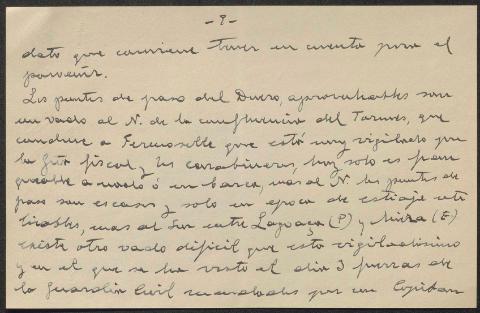 - 9 -
dato que conviene tener en cuenta para el
porvenir.
Los puntos de paso del Duero, aprovechables son
un vado al N. de la confluencia del Tormes, que
conduce a Fermoselle que está muy vigilado por
la fiscal y los carabineros, hoy solo es fran
queable a nado ó en barca, mas al N. los puntos de
paso son escasos y solo en epoca de estiaje uti
lizables, mas al Sur entre Lagoaça (P) y Mieza (E)
existe otro vado dificil que está vigiladisimo
y en el que se ha visto el dia 3 fuerzas de
la Guardia Civil mandadas por un Capitan